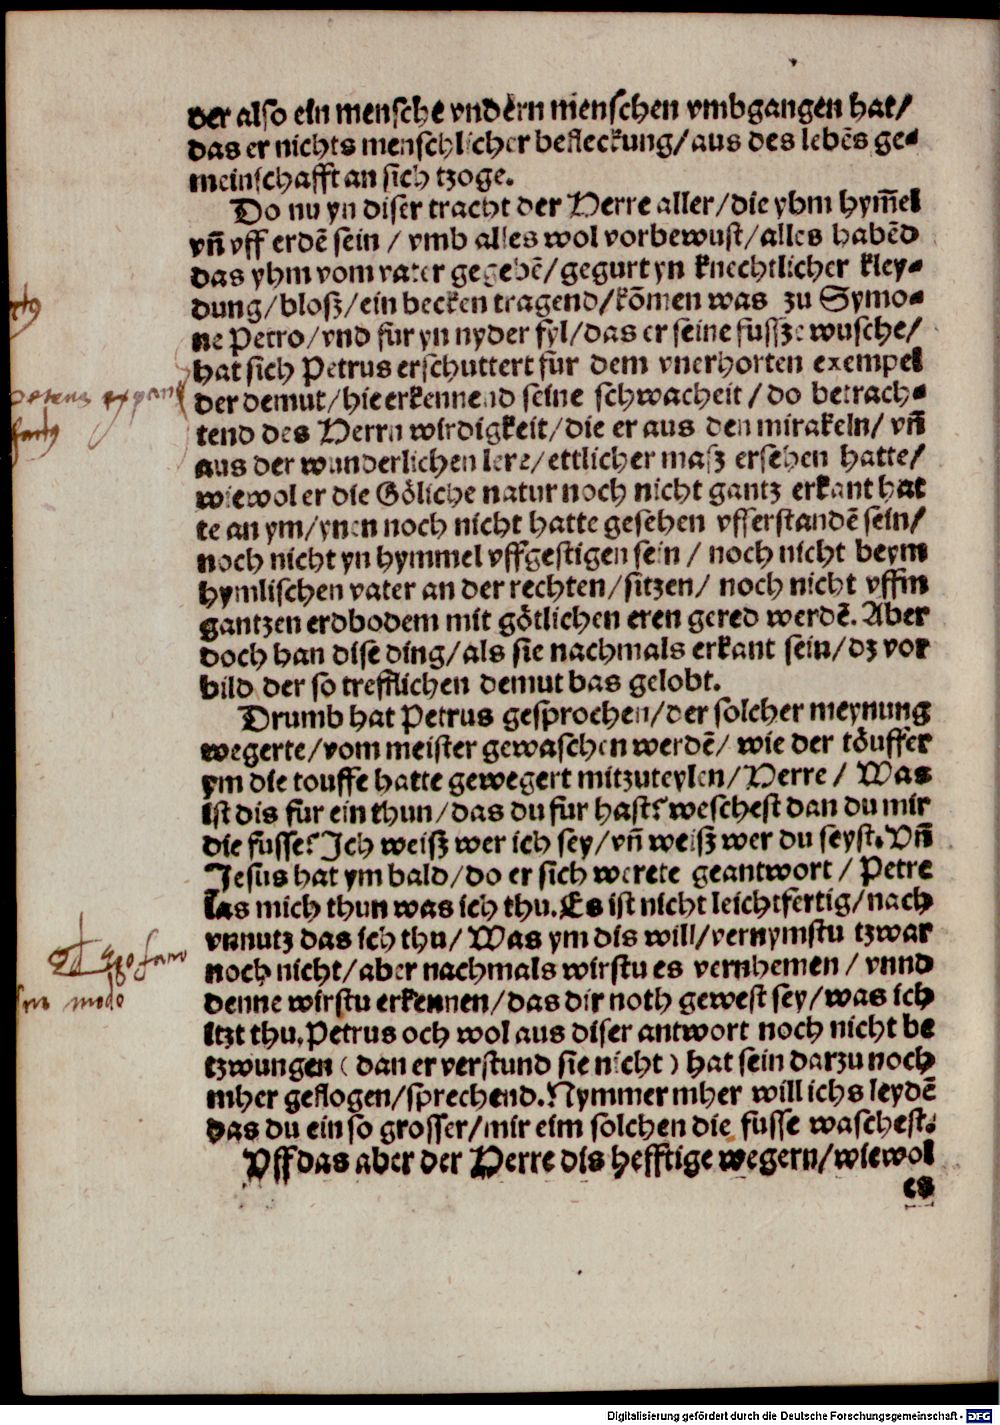 der also ein mensche vndern menschen vmbgangen hat/
das er nichts menschlicher befleckung/aus des lebēs ge⸗
meinschafft an sich tzoge.
Do nu yn diser tracht der Herre aller/die yhm hym̄el
vn̄ vff erdē sein / vmb alles wol vorbewust/alles habēd
das yhm vom vater gegebē/gegurt yn knechtlicher kley⸗
dung/bloß/ein becken tragend/kōmen was zu Symo⸗
ne Petro/vnd fur yn nyder fyl/das er seine fussze wusche/
hat sich Petrus erschuttert fur dem vnerhorten exempel
der demut/hie erkennend seine schwacheit / do betrach⸗
tend des Herrn wirdigkeit/die er aus den mirakeln/ vn̄
aus der wunderlichen lere/ettlicher maß ersehen hatte/
wiewol er die Göliche natur noch nicht gantz erkant hat
te an ym/ynen noch nicht hatte gesehen vfferstandē sein/
noch nicht yn hymmel vffgestigen sein / noch nicht beym
hymlischen vater an der rechten/sitzen/ noch nicht vffm
gantzen erdbodem mit götlichen eren gered werdē. Aber
doch han dise ding/als sie nachmals erkant sein/dz vor
bild der so trefflichen demut bas gelobt.
Drumb hat Petrus gesprochen/der solcher meynung
wegerte/vom meister gewaschen werdē/ wie der töuffer
ym die touffe hatte gewegert mitzuteylen/Herre / Was
ist dis fur ein thun/das du fur hast? weschest dan du mir
die fusse? Ich weiß wer ich sey/vn̄ weiß wer du seyst. Vn̄
Jesus hat ym bald/do er sich werete geantwort / Petre
las mich thun was ich thu. Es ist nicht leichtfertig/nach
vnnutz das ich thu/ Was ym dis will/vernymstu tzwar
noch nicht/aber nachmals wirstu es vernhemen / vnnd
denne wirstu erkennen/das dir noth gewest sey/was ich
itzt thu. Petrus och wol aus diser antwort noch nicht be
tzwungen ( dan er verstund sie nicht ) hat sein darzu noch
mher geflogen/sprechend. Nymmer mher will ichs leydē
das du ein so grosser/mir eim solchen die fusse waschest.
Vff das aber der Herre dis hefftige wegern/wiewol
es
Petrus
Qd ego facio
modo
Digitalisierung gefördert durch die Deutsche Forschungsgemeinschaft - DFG